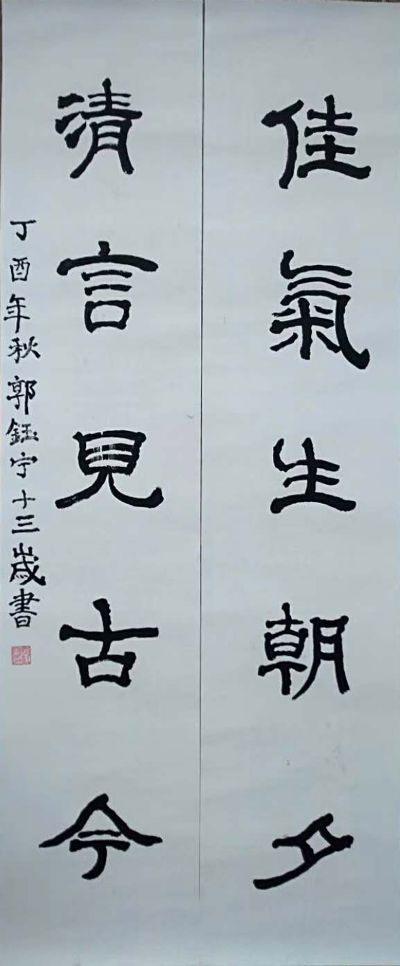 佳氣生朝夕
清言見古今
丁酉年秋郭鈺宁十三歲書